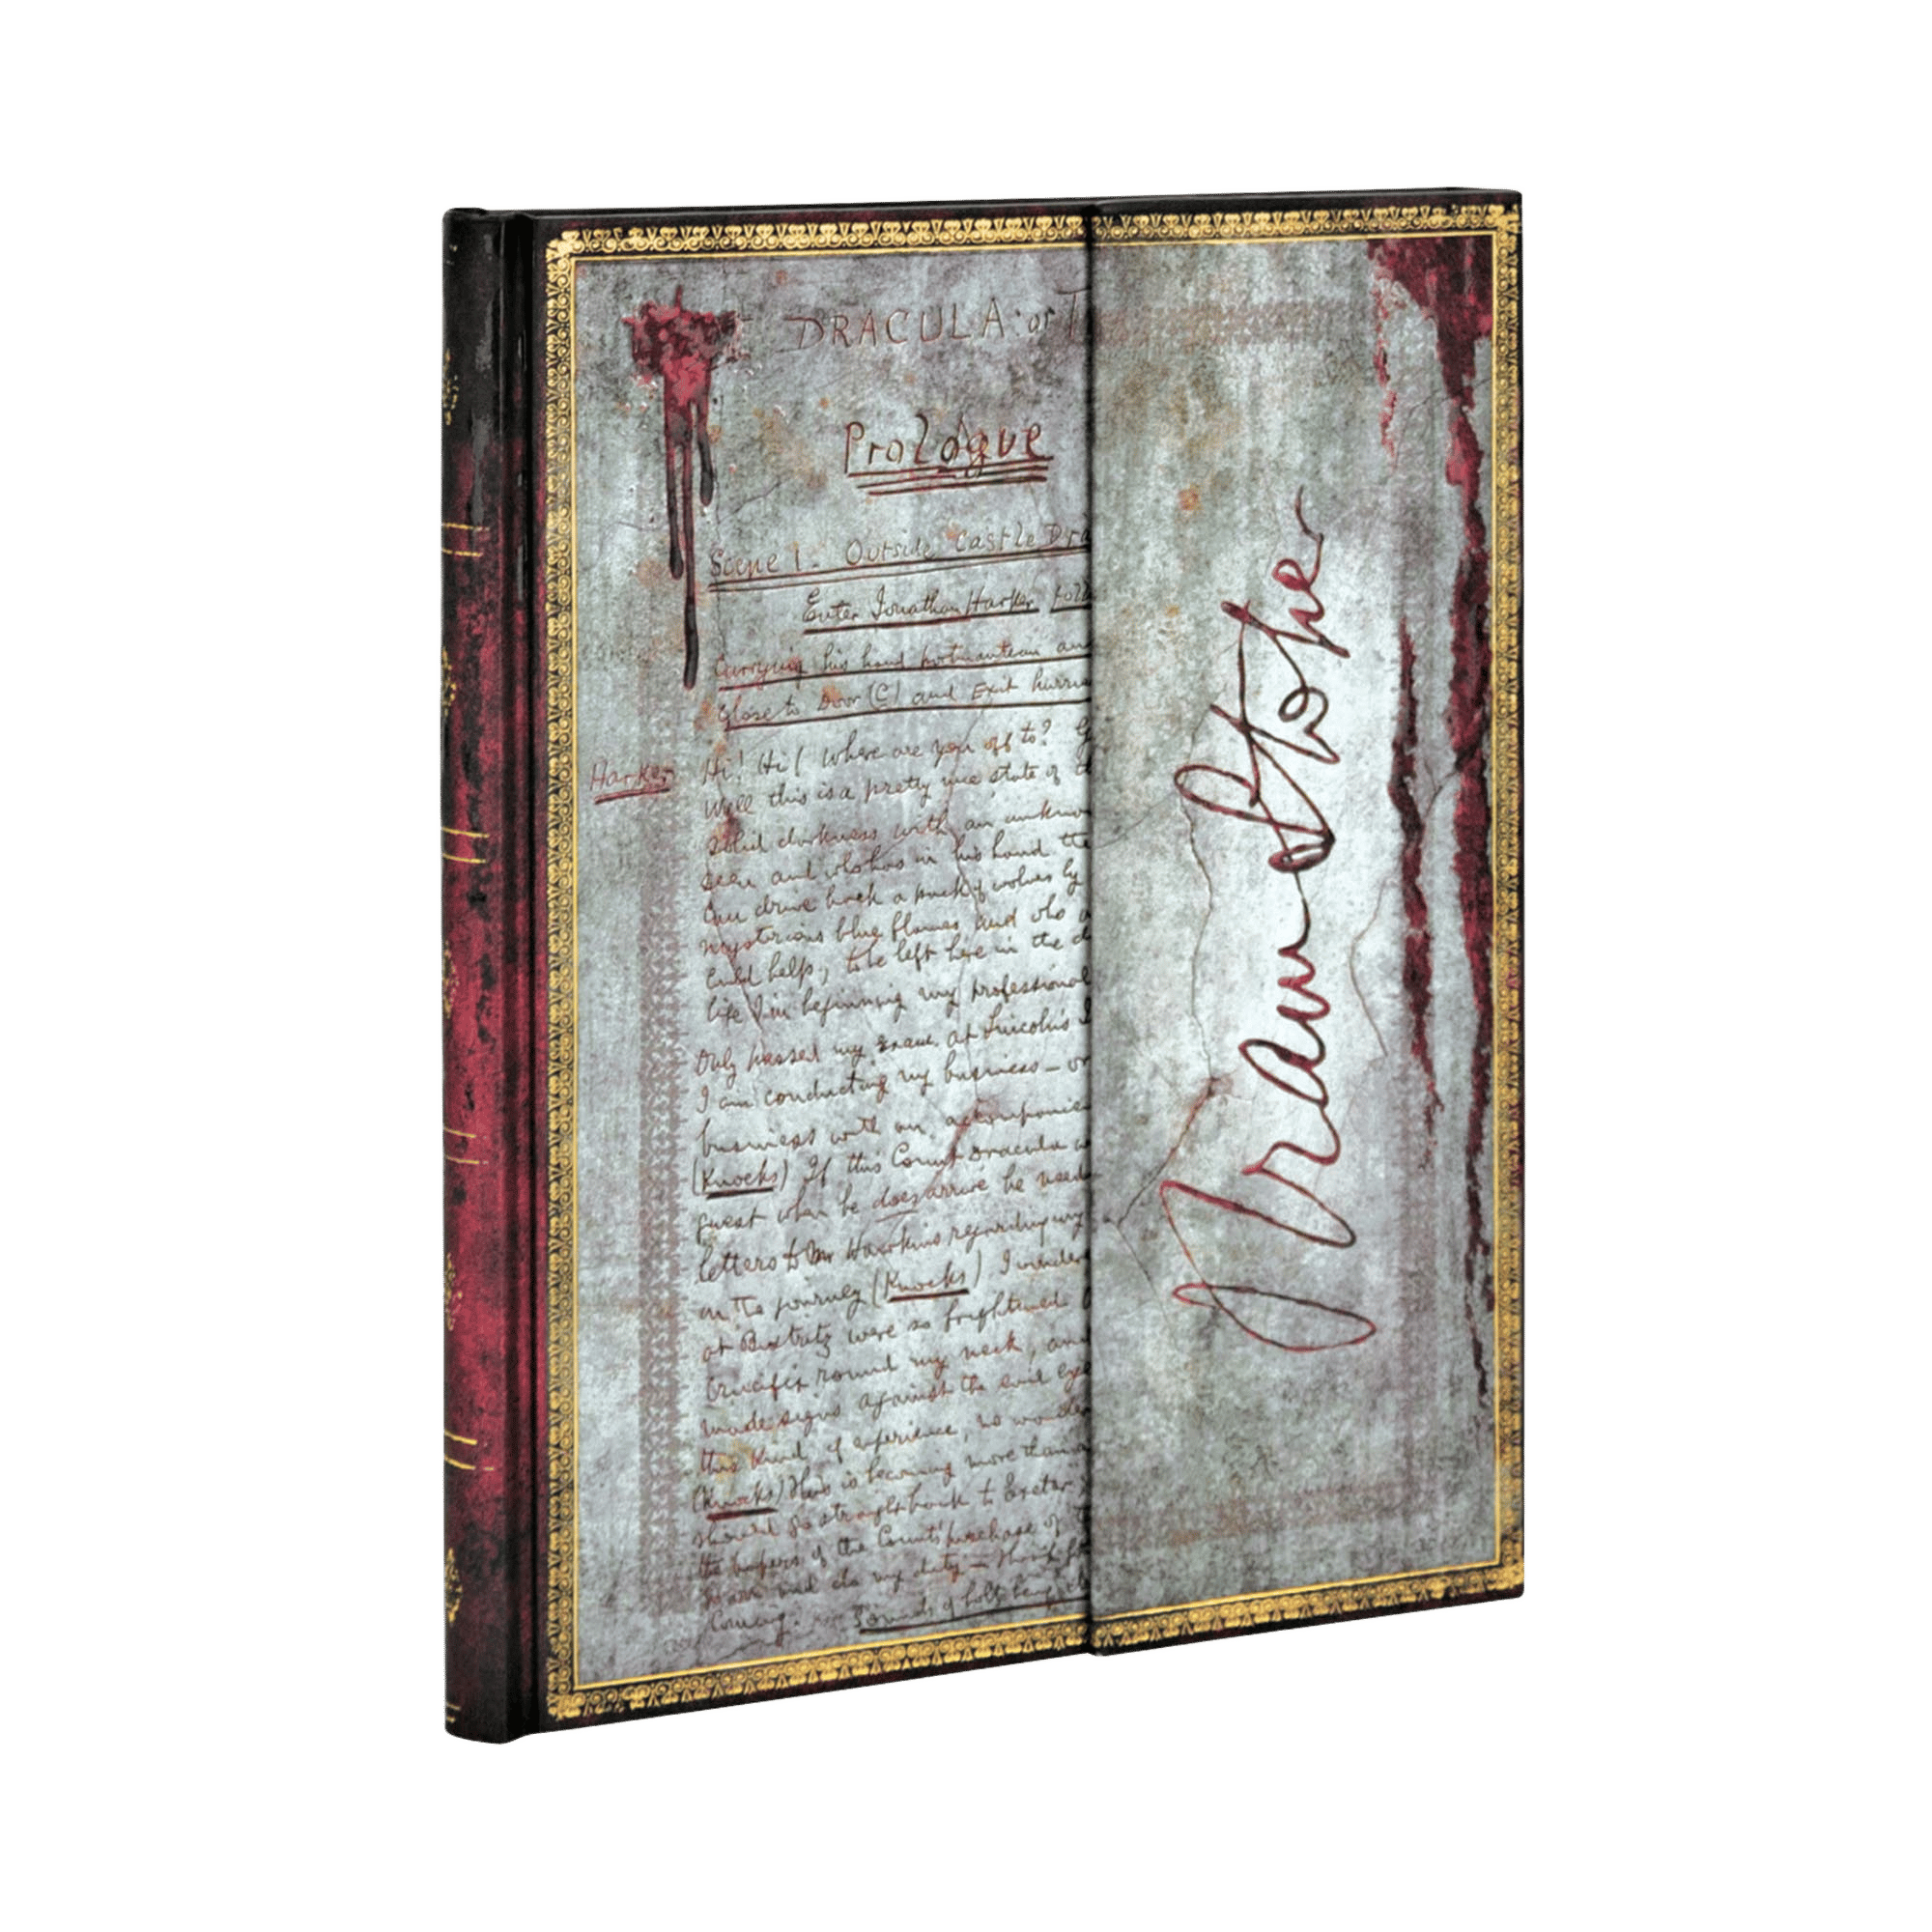 DRACULA: or T
Prologue
Scene 1. Outside Castle Dra
Enter Jonathan Harker foll
Carrying his hand portmanteau an
Close to Door (C) and Exit hurrie
Harker Hi! Hi! Where are you off to? G
Well this is a pretty nice state of th
solid darkness with an unknow
seen and who has in his hand the
Can drive back a pack of wolves by
mysterious blue flames and who a
Could help, to be left here in the d
life I'm beginning my professional
Only passed my exam. at Lincoln's I
I am conducting my business – or
business with an accompanie
(Knocks) If this Count Dracula
guest when he does arrive he need
letters to Mr Hawkins regarding my
on the journey (Knocks) I wonder
at Bistritz were so frightened
Crucifix round my neck, and
made signs against the evil eye
this kind of experience, no wonder
(Knocks) This is becoming more than
should go straight back to Exeter
the papers of the Count's purchase of
and do my duty –
Coming. Sounds of bolts being
Bram Stoker